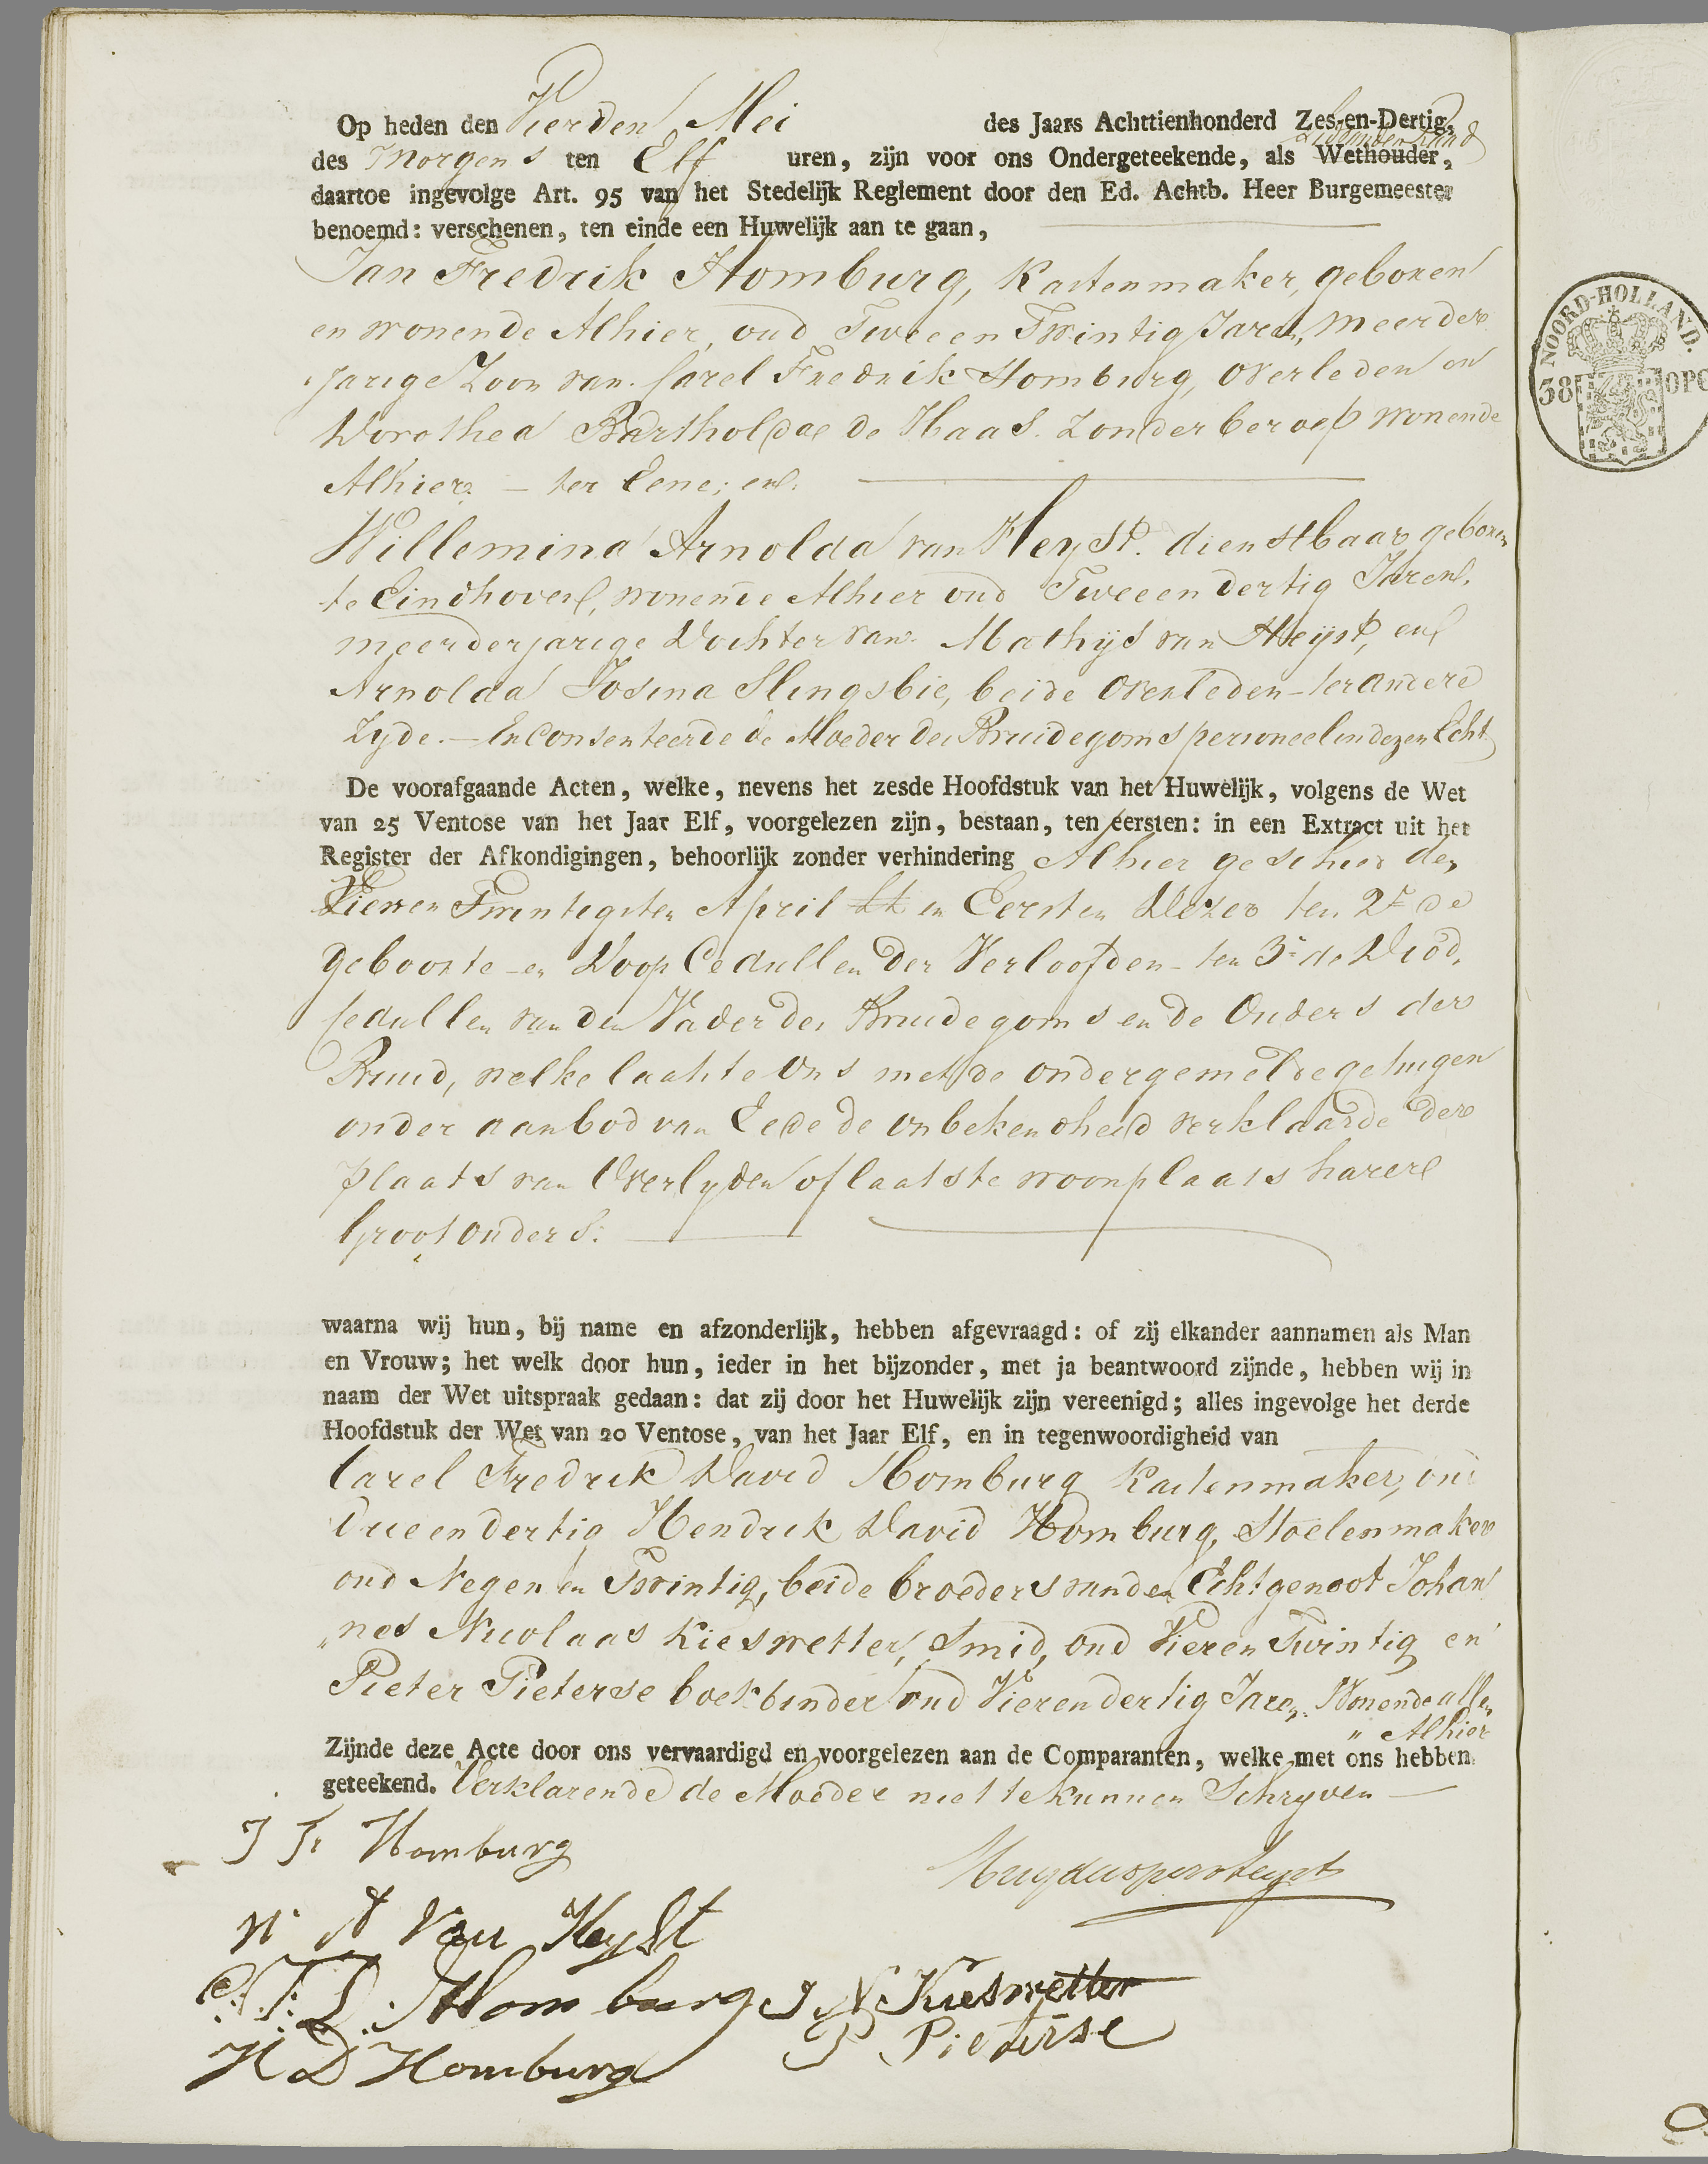 Op heden den Vierden Mei des Jaars Achttienhonderd Zes-en-Dertig,
des Morgens ten Elf uren, zijn voor ons Ondergeteekende, als Wethouder,
daartoe ingevolge Art. 95 van het Stedelijk Reglement door den Ed. Achtb. Heer Burgemeester
benoemd: verschenen, ten einde een Huwelijk aan te gaan,
Jan Fredrik Homburg, Kastenmaker, geboren
en wonende Alhier, oud Twee en Twintig Jaren, meerder
jarige Zoon van Carel Fredrik Homburg, overleden en
Dorothea Bartholdae de Haas. Zonder beroep wonende
Alhier – ter Eene; en
Willemina Arnolda van Heyst. dienstbaar geboren
te Eindhoven, wonende Alhier oud Tweeendertig Jaren.
meerderjarige Dochter van Mathijs van Heijst, en
Arnolda Josina Slingsbie, beide overleden – ter andere
Zyde. – En Consenteerde de Moeder des Bruidegoms personeel in dezen Echt
De voorafgaande Acten, welke, nevens het zesde Hoofdstuk van het Huwelijk, volgens de Wet
van 25 Ventose van het Jaar Elf, voorgelezen zijn, bestaan, ten eersten: in een Extract uit het
Register der Afkondigingen, behoorlijk zonder verhindering Alhier geschied den
Vier en Twintigsten April en Eersten Dezer ten 2e de
Geboorte- en Doop Cedullen der Verloofden – ten 3e de Dood,
Cedullen van den Vader des Bruidegoms en de Ouders der
Bruid, welke laatste ons met de ondergemelde getuigen
onder aanbod van Eede de onbekendheid verklaarde der
plaats van Overlyden of laatste woonplaats harer
Grootouders.
waarna wij hun, bij name en afzonderlijk, hebben afgevraagd: of zij elkander aannamen als Man
en Vrouw; het welk door hun, ieder in het bijzonder, met ja beantwoord zijnde, hebben wij in
naam der Wet uitspraak gedaan: dat zij door het Huwelijk zijn vereenigd; alles ingevolge het derde
Hoofdstuk der Wet van 20 Ventose, van het Jaar Elf, en in tegenwoordigheid van
Carel Fredrik David Homburg Kastenmaker, oud
Drieendertig Hendrik David Homburg, Stoelenmaker
oud Negen en Twintig, beide broeders van den Echtgenoot Johan
"nes Nicolaas Kieswetter, Smid, oud Vier en Twintig en
Pieter Pieterse boekbinder oud Vierendertig Jaren. Wonende allen
" Alhier
Zijnde deze Acte door ons vervaardigd en voorgelezen aan de Comparanten, welke met ons hebben
geteekend. Verklarende de Moeder niet te kunnen Schryven –
J Fr Homburg
W A Van Heyst
C. F. D. Homburg J. N. Kieswetter
H D Homburg P Pieterse
NOORD-HOLLAND.
38 OPC